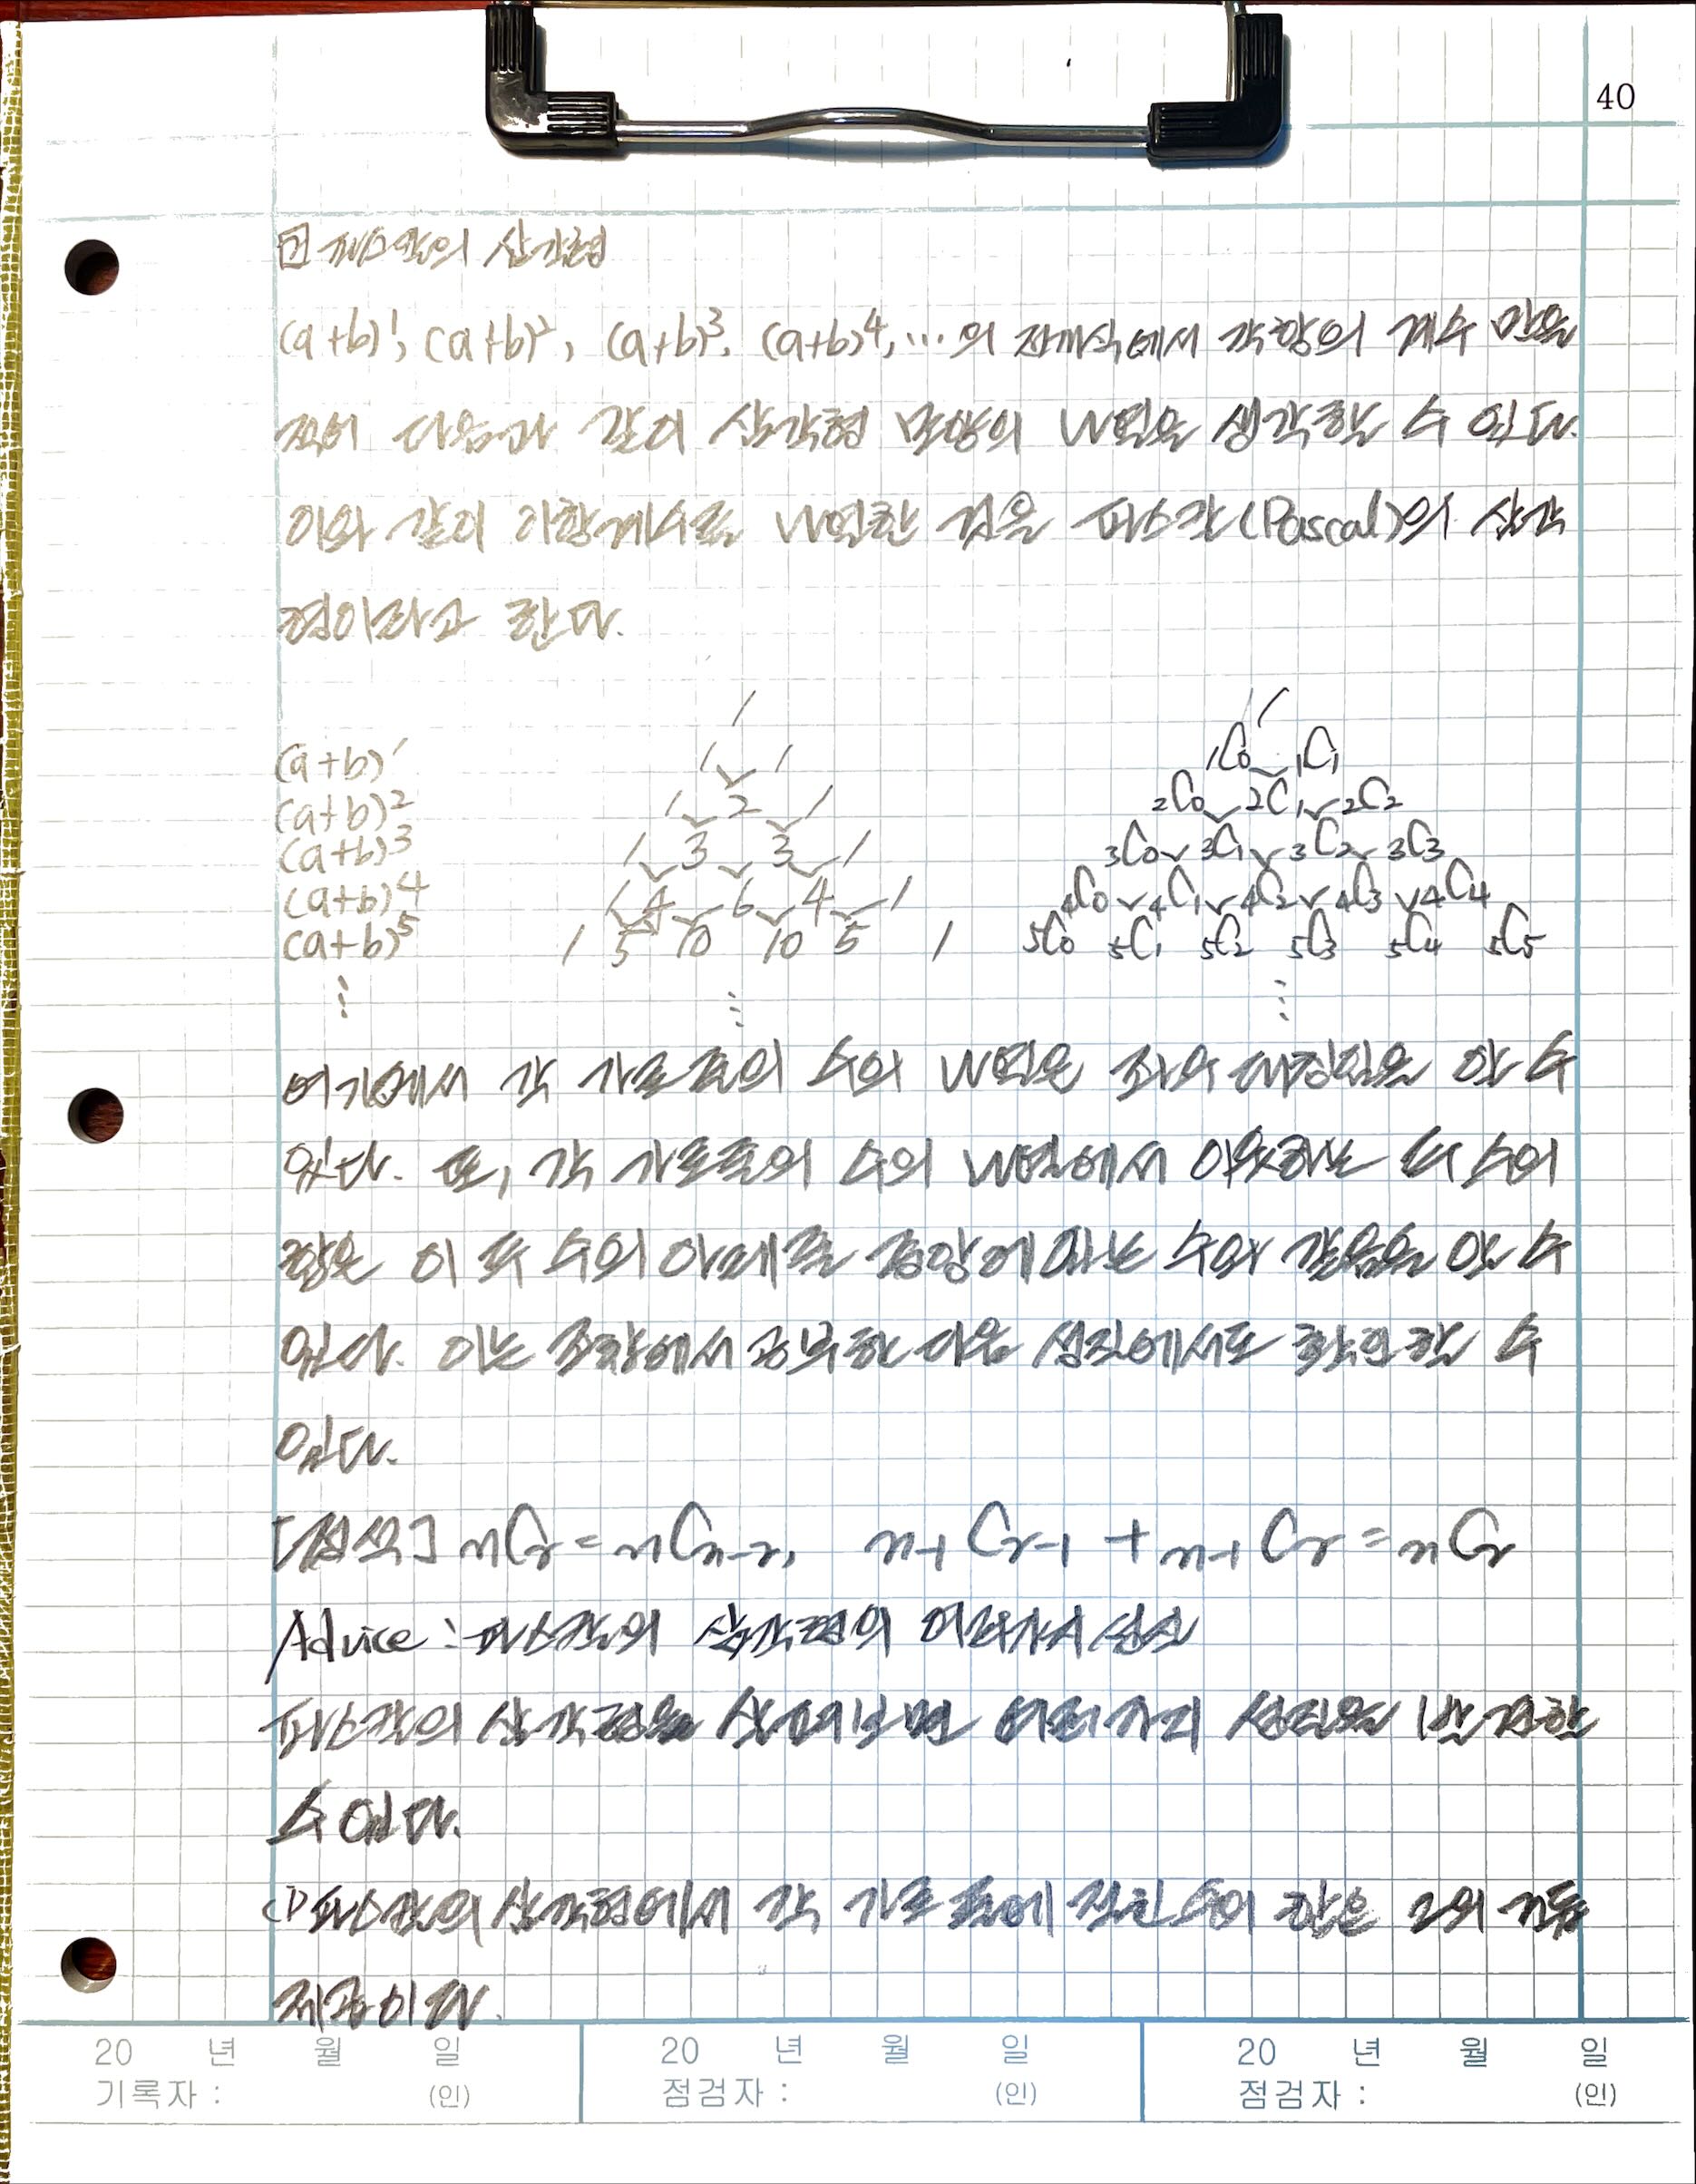 40
파스칼의 삼각형
(a+b)¹, (a+b)², (a+b)³, (a+b)⁴, …의 전개식에서 각 항의 계수 만을
적어 다음과 같이 삼각형 모양의 배열을 생각할 수 있다.
이와 같이 이항계수를 배열한 것을 파스칼(Pascal)의 삼각
형이라고 한다.
1 1
(a+b)¹ 1 1 ₁C₀ ₁C₁
(a+b)² 1 2 1 ₂C₀ ₂C₁ ₂C₂
(a+b)³ 1 3 3 1 ₃C₀ ₃C₁ ₃C₂ ₃C₃
(a+b)⁴ 1 4 6 4 1 ₄C₀ ₄C₁ ₄C₂ ₄C₃ ₄C₄
(a+b)⁵ 1 5 10 10 5 1 ₅C₀ ₅C₁ ₅C₂ ₅C₃ ₅C₄ ₅C₅
⋮ ⋮ ⋮
여기에서 각 가로줄의 수의 배열은 좌우 대칭임을 알 수
있다. 또, 각 가로줄의 수의 배열에서 이웃하는 두 수의
합은 이 두 수의 아래줄 중앙에 있는 수와 같음을 알 수
있다. 이는 조합에서 공부한 다음 성질에서도 확인할 수
있다.
[정석] ₙCᵣ = ₙCₙ₋ᵣ, ₙ₋₁Cᵣ₋₁ + ₙ₋₁Cᵣ = ₙCᵣ
Advice : 파스칼의 삼각형의 여러가지 성질
파스칼의 삼각형을 살펴보면 여러가지 성질을 발견할
수 있다.
(1) 파스칼의 삼각형에서 각 가로 줄에 적힌 수의 합은 2의 거듭
제곱이다.
20 년 월 일 20 년 월 일 20 년 월 일
기록자 : (인) 점검자 : (인) 점검자 : (인)